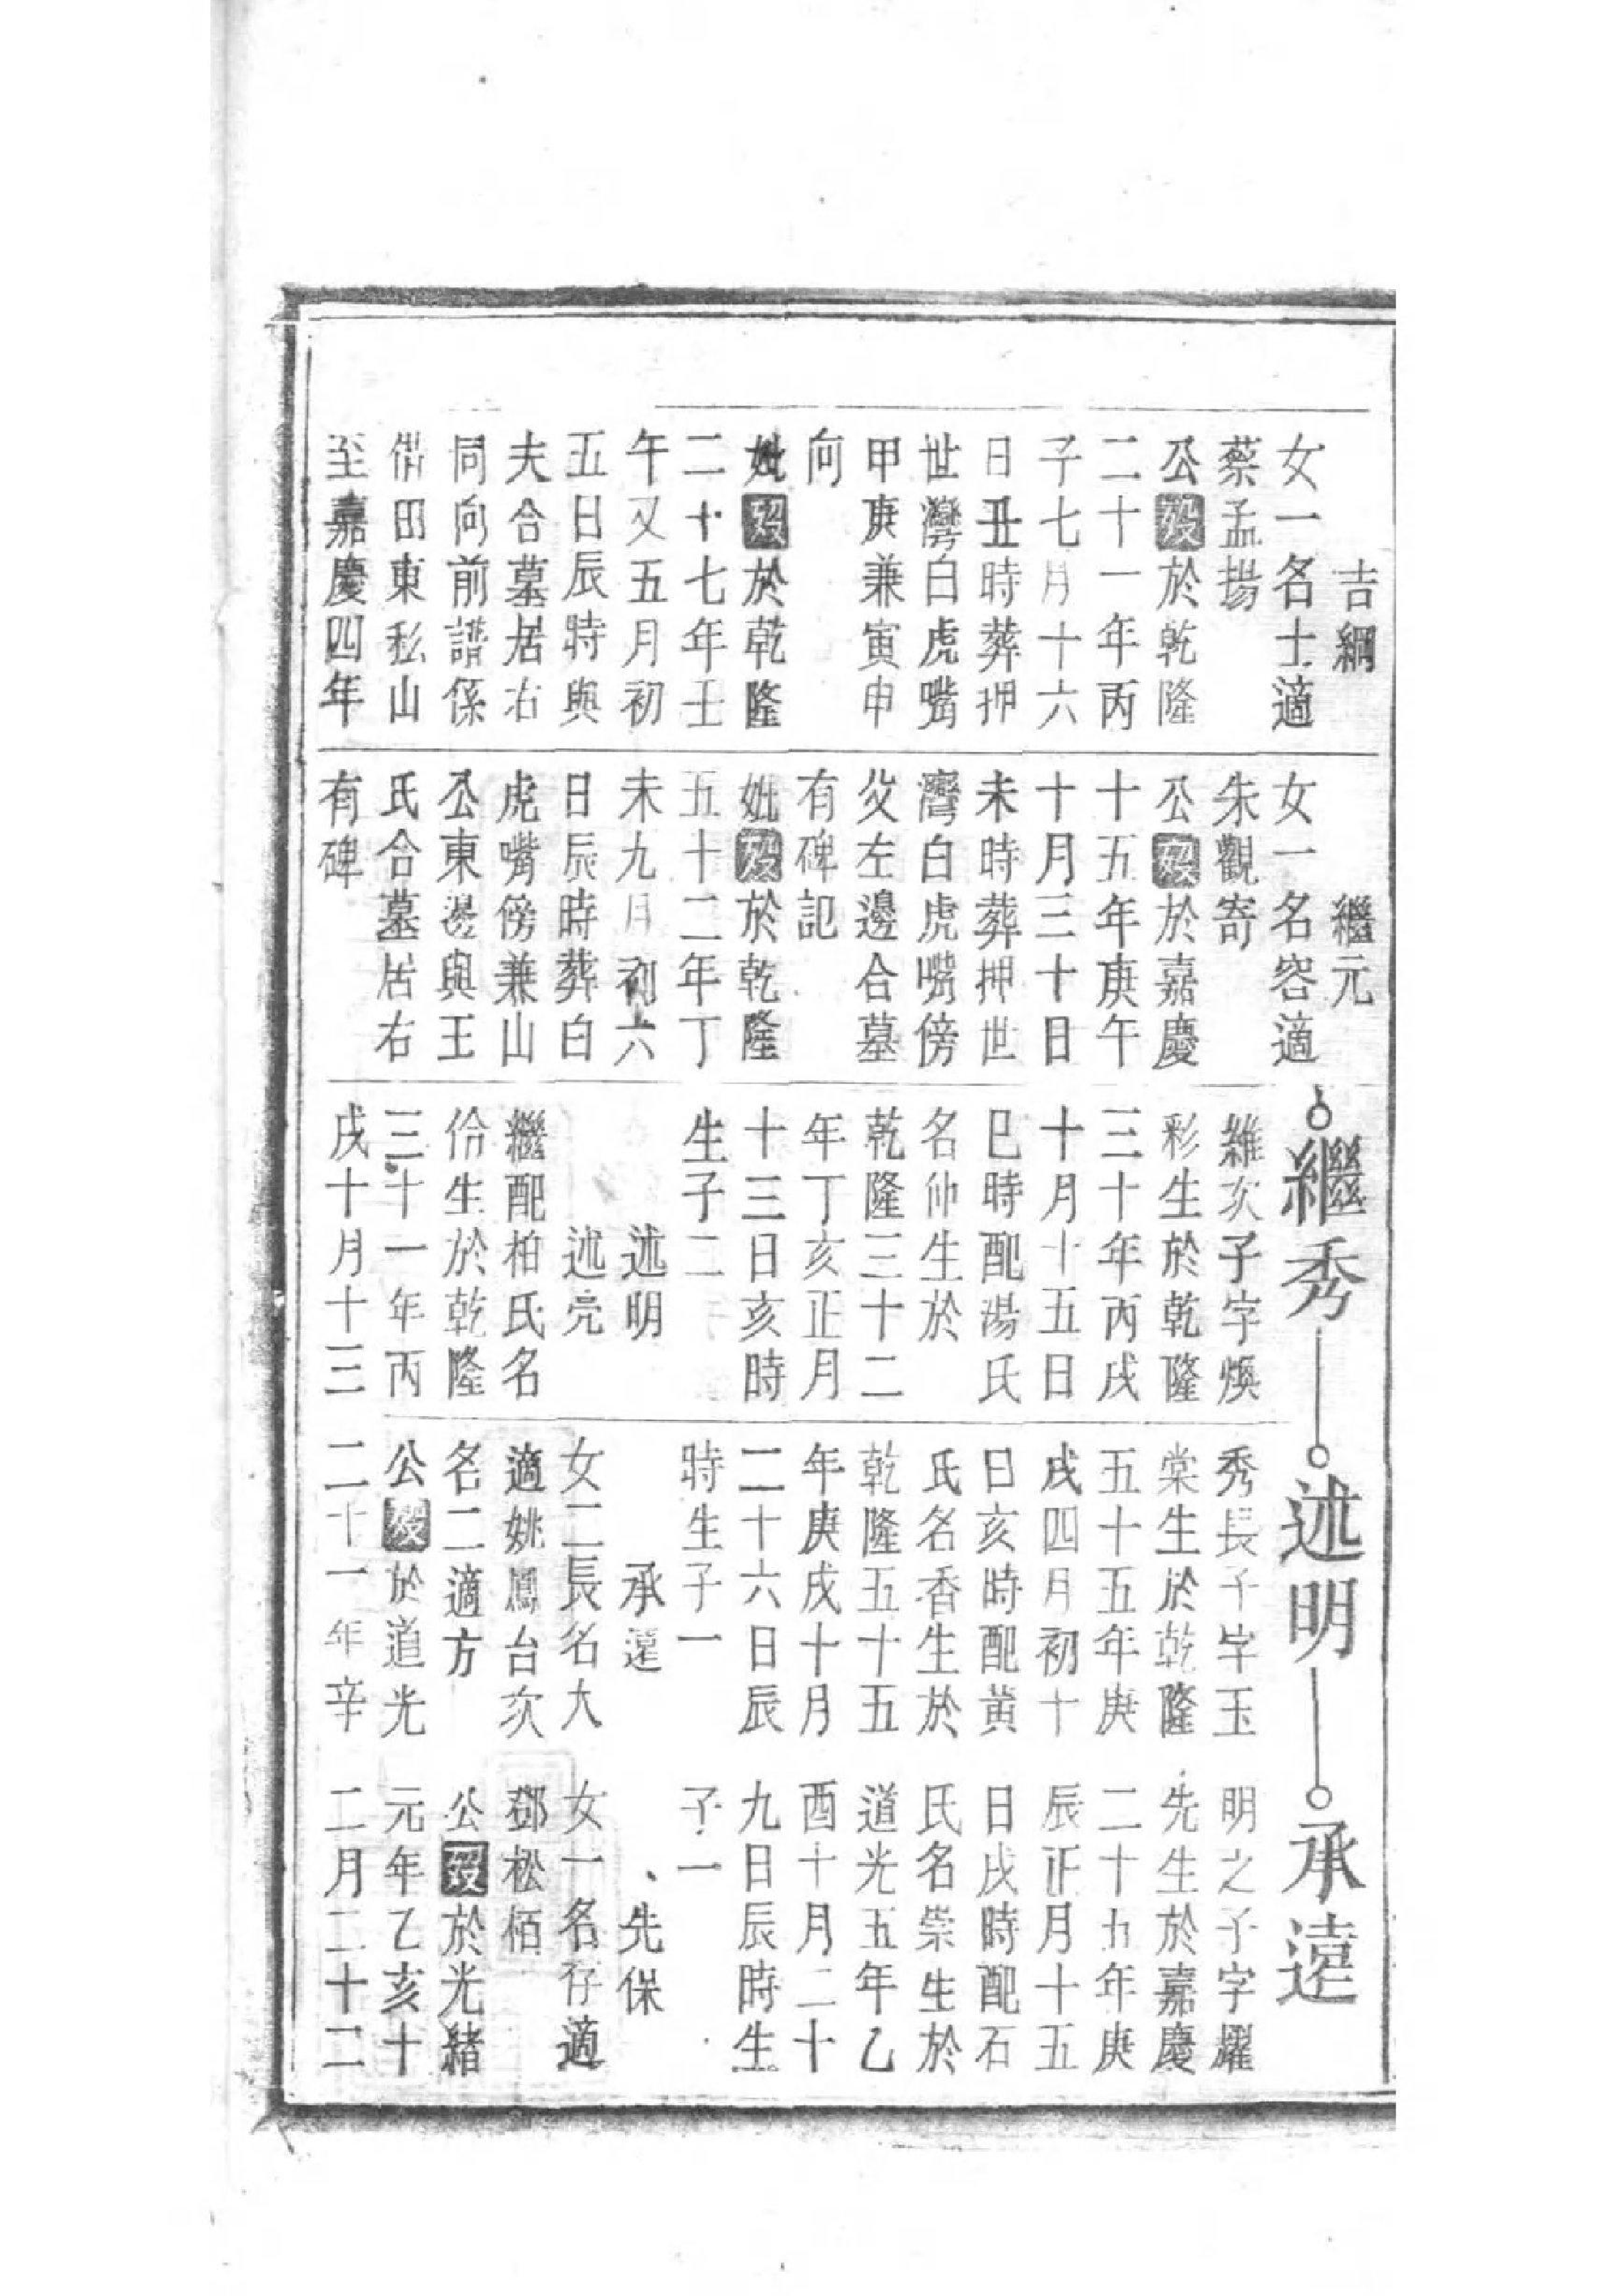 吉綱
女一名士適
蔡孟揚
公歿於乾隆
二十一年丙
子七月十六
日丑時葬押
世灣白虎嘴
甲庚兼寅申
向
妣歿於乾隆
二十七年壬
午又五月初
五日辰時與
夫合墓居右
同向前譜係
借田東私山
至嘉慶四年
繼元
女一名容適
朱觀寄
公歿於嘉慶
十五年庚午
十月三十日
未時葬押世
灣白虎嘴傍
父左邊合墓
有碑記
妣歿於乾隆
五十二年丁
未九月初六
日辰時葬白
虎嘴傍兼山
公東邊與王
氏合墓居右
有碑
繼秀
雒次子字煥
彩生於乾隆
三十年丙戌
十月十五日
巳時配湯氏
名仲生於
乾隆三十二
年丁亥正月
十三日亥時
生子二
述明
述亮
繼配柏氏名
佮生於乾隆
三十一年丙
戌十月十三
述明
秀長子字玉
棠生於乾隆
五十五年庚
戌四月初十
日亥時配黃
氏名香生於
乾隆五十五
年庚戌十月
二十六日辰
時生子一
承遠
女二長名大
適姚鳳台次
名二適方
公歿於道光
二十一年辛
承遠
明之子字耀
先生於嘉慶
二十五年庚
辰正月十五
日戌時配石
氏名崇生於
道光五年乙
酉十月二十
九日辰時生
子一
先保
女一名存適
鄧松栢
公歿於光緒
元年乙亥十
二月二十二